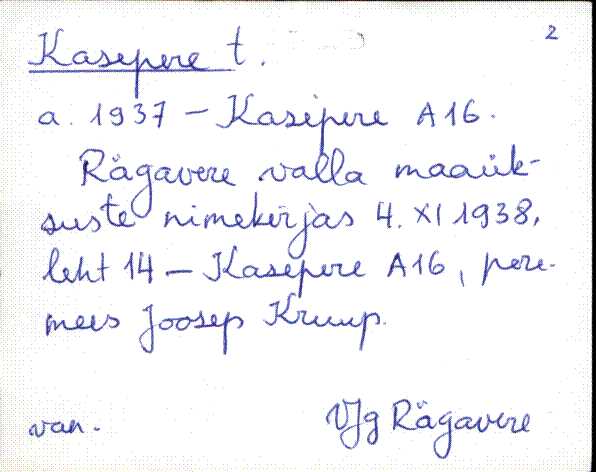 2
Kasepere t.
a. 1937 – Kasepere A16.
Rägavere valla maaük-
suste nimekirjas 4. XI 1938,
leht 14 – Kasepere A16, pere-
mees Joosep Kruup.
van. VJg Rägavere